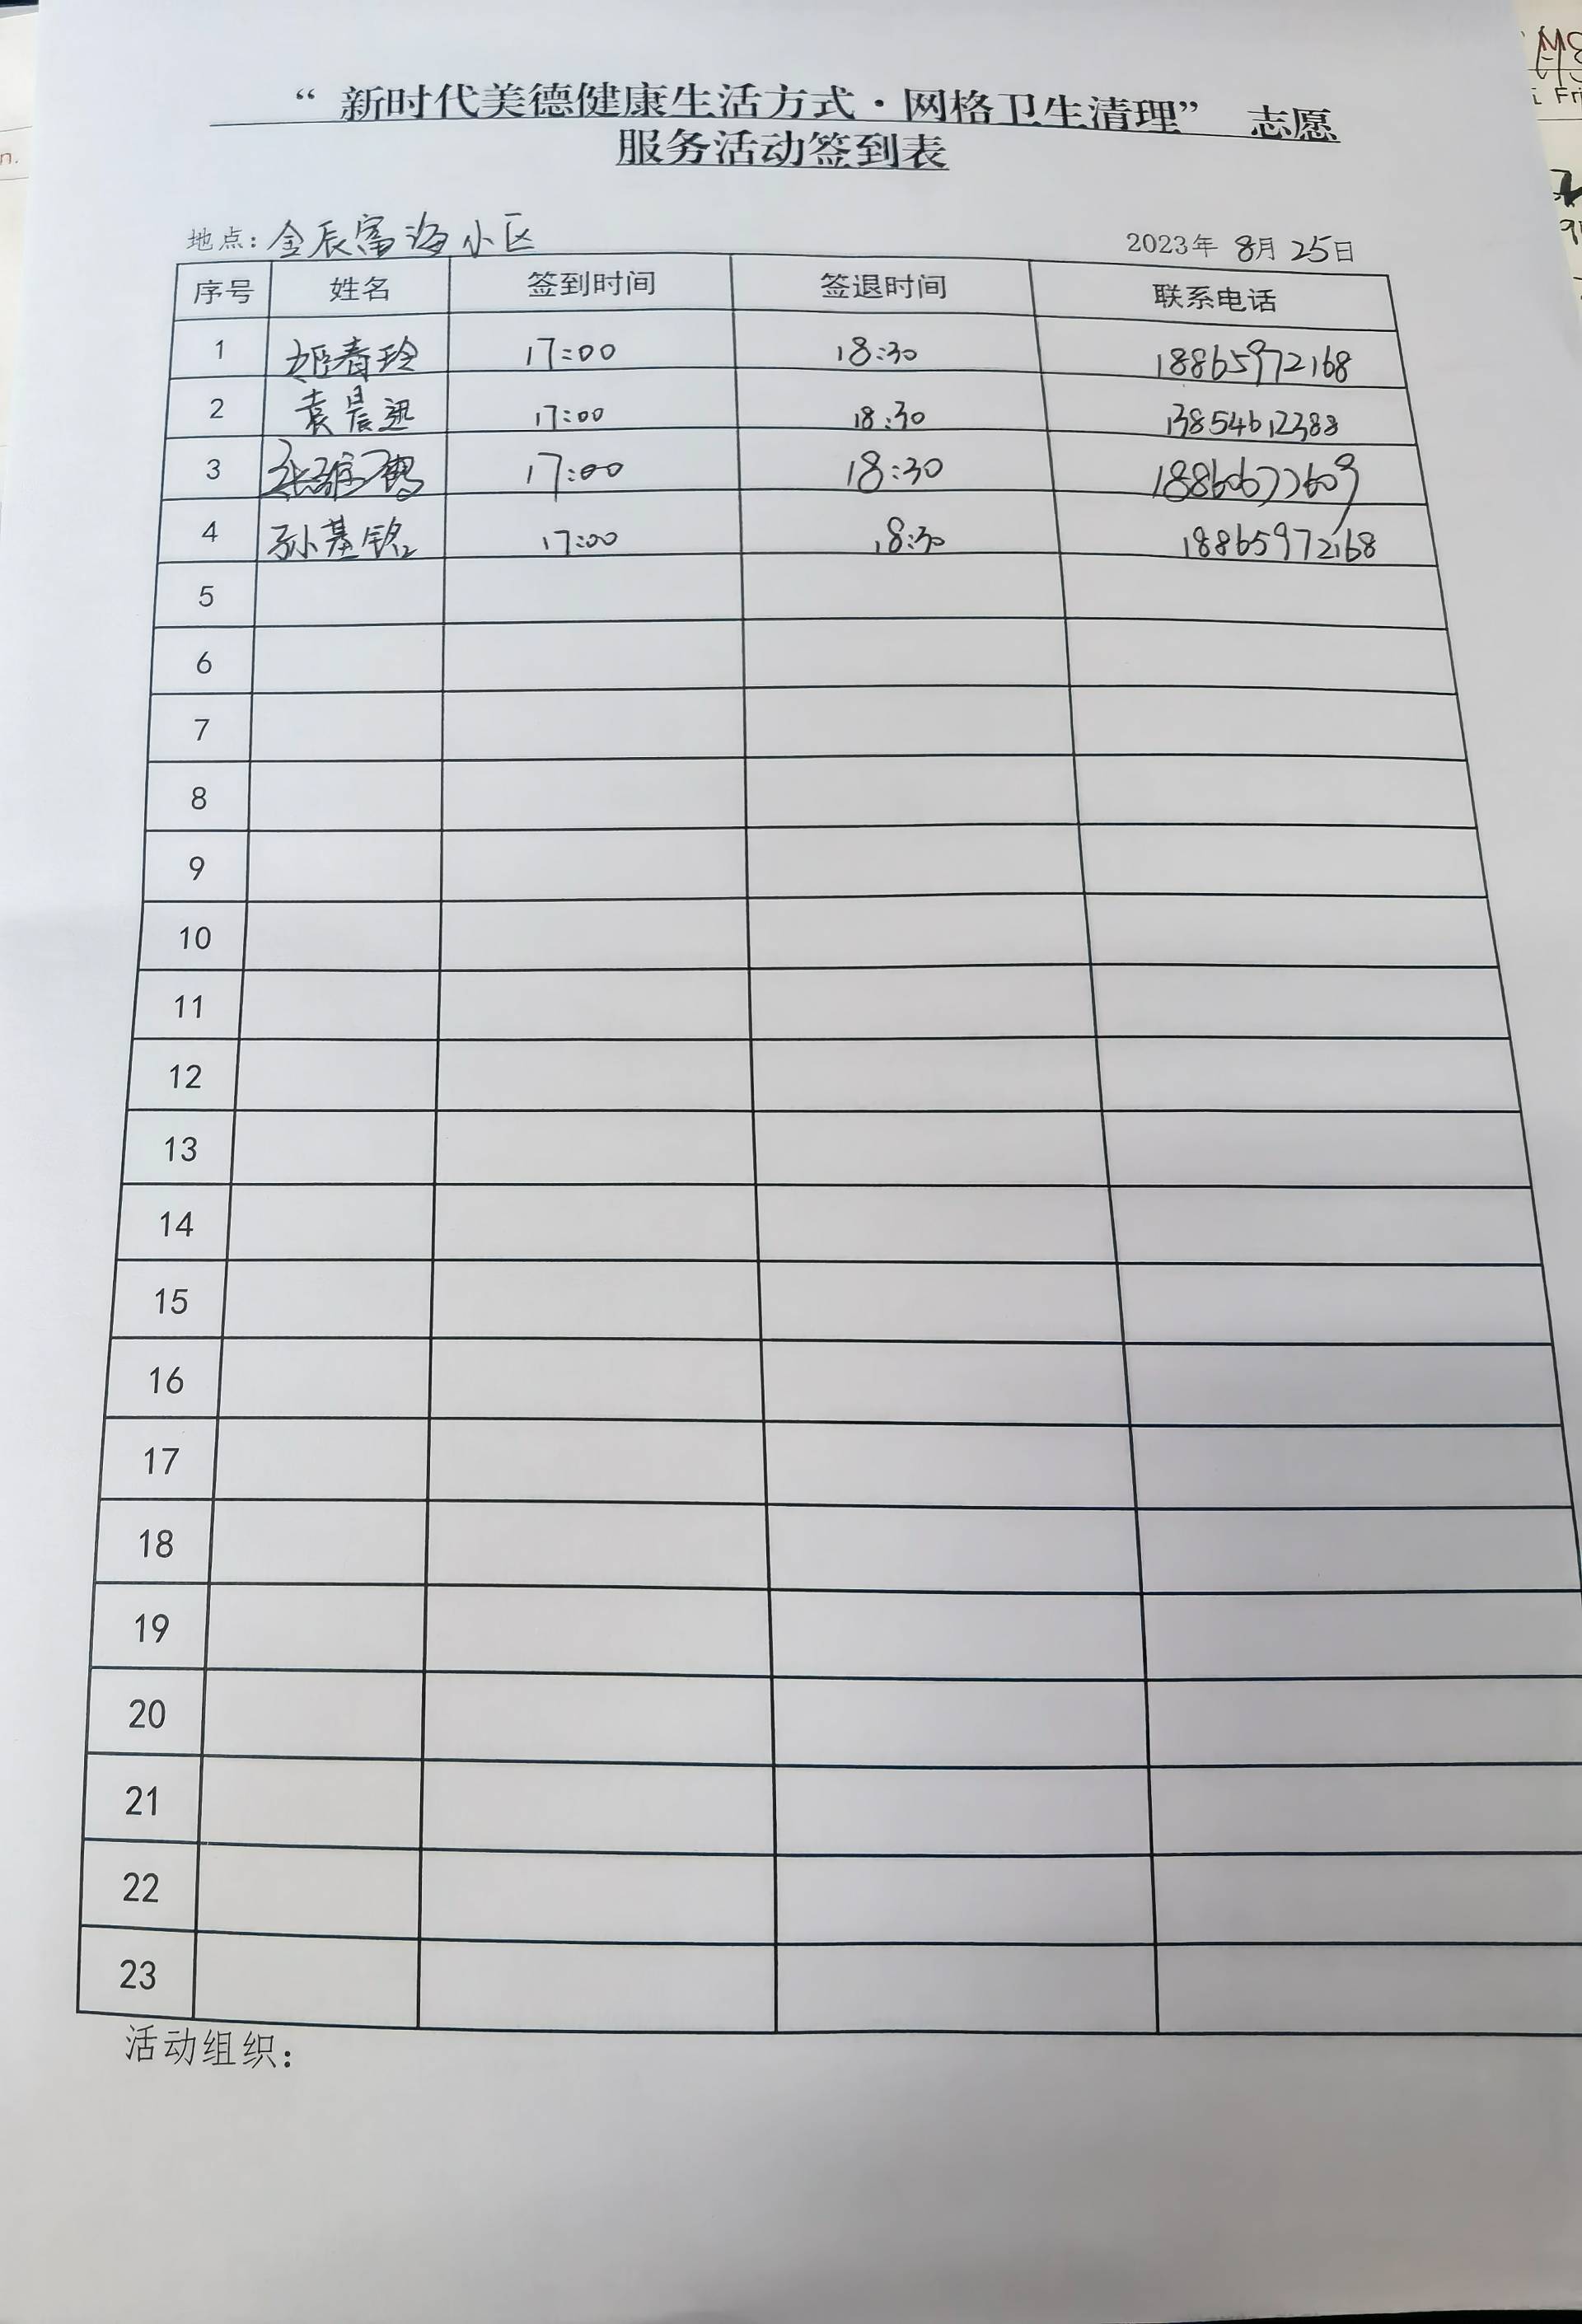 “ 新时代美德健康生活方式·网格卫生清理” 志愿
服务活动签到表
地点: 金辰富海小区 2023年 8月 25日
序号 姓名 签到时间 签退时间 联系电话
1 姬春玲 17:00 18:30 18865972168
2 袁晨迅 17:00 18:30 13854612388
3 17:00 18:30 18860677609
4 孙基铭 17:00 18:30 18865972168
5
6
7
8
9
10
11
12
13
14
15
16
17
18
19
20
21
22
23
活动组织: